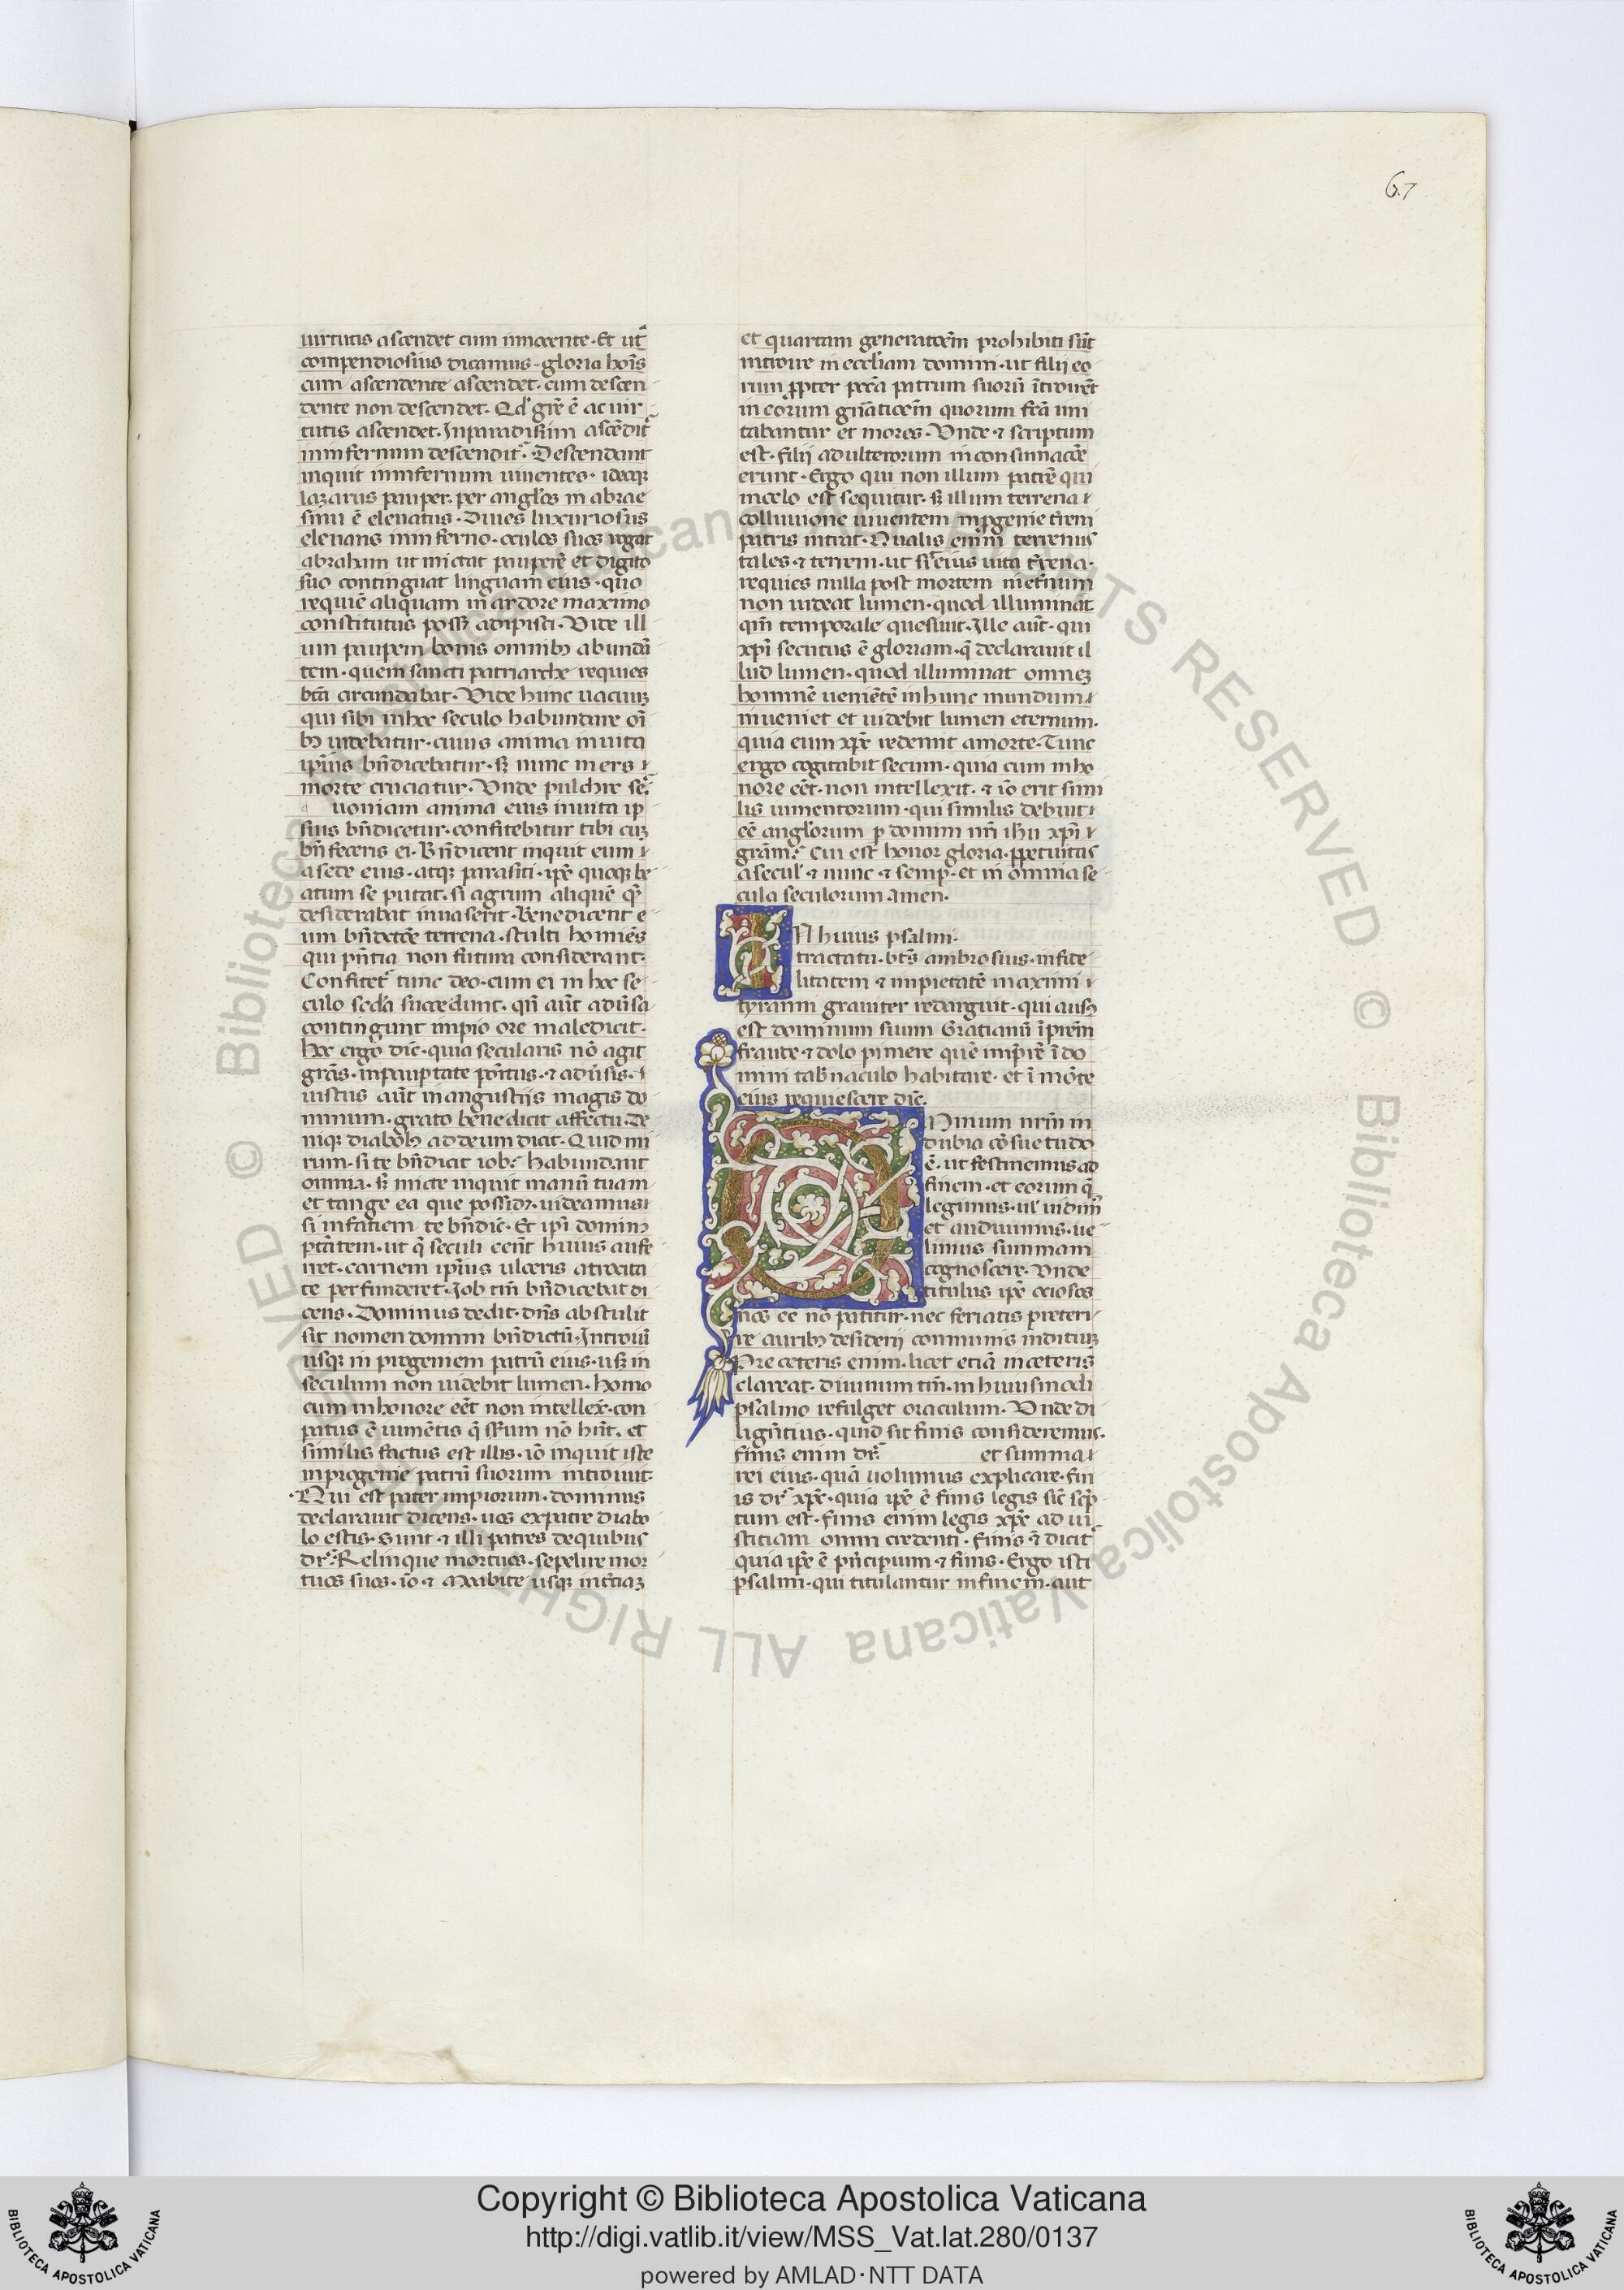 67
uirtutis ascendet cum innocente · Et ut
compendiosius dicamus · gloria hoīs
cum ascendente ascendet · cum descen
dente non descendet · Qd' gr̄e ē ac uir
tutis ascendet · Inparadisum ascēdit᷑
ininfernum descendit᷑ · Descendant
inquit ininfernum uiuentes · ideoqꝫ
lazarus pauper · per angl'os in abrae
sinu ē eleuatus · Diues luxuriosus
eleuans ininferno · oculos suos rogat
abraham ut mictat pauperē et digito
suo continguat linguam eius · quo
requiē aliquam in ardore maximo
constitutus possꝫ adipisci · Vide ill
um paupem bonis omnibꝫ abundā
tem · quem sancti patriarche requies
btā circundabat · Vide hunc uacuuꝫ
qui sibi inhoc seculo habundare oī
bꝫ uidebatur · cuius anima inuita
ipsius bn̄dicebatur · sꝫ nunc in ers
morte cruciatur · Vnde pulchre se᷑
uoniam anima eius inuita ip
sius bn̄dicetur · confitebitur tibi cuꝫ
bn̄ feceris ei · Bn̄dicent inquit eum
a sede eius · atqꝫ parasiti · ipē quoqꝫ be
atum se putat · si agrum aliquē qꝫ
desiderabat inuaserit · Benedicent e
um bn̄dictōe terrena · stulti homiēs
qui pn̄tia non futura considerant ·
Confitet᷑ tunc deo · cum ei in hoc se
culo scd'a succedunt · qn̄ aūt aduīsa
contingunt impio ore maledicit ·
Hoc ergo dic̄ · quia secularis nō agit
grās · inpauptate pōitus · ⁊ aduīsis ·
iustus aūt in angustijs magis do
minum · grato benedicit affectu · De
niqꝫ diabol'ꝫ ad deum dicit · Quid mi
rum · si te bn̄dicit iob · habundant
omnia · sꝫ micte inquit manū tuam
et tange ea que possidꝫ · uideamus
si infatiem te bn̄dic̄ · Et ipī dominꝫ
ptātem · ut q̄ seculi eent huius aufe
rret · carnem ipsius ulceris atrocita
te perfunderet · Iob tn̄ bn̄dicebat di
cens · Dominus dedit · dn̄s abstulit
sit nomen domini bn̄dictū · Introiuī
usqꝫ in progeniem patrū eius · usꝫ in
seculum non uidebit lumen · homo
cum inhonore eēt non intellex · con
patus ē iumētis q̄ sēsum nō hn̄t · et
similis factus est illis · iō inquit iste
in progenie patrū suorum introiuit ·
· Qui est pater impiorum · dominus
declarauit dicens · uos expatre diabo
lo estis · Sunt ⁊ illi patres dequibus
dr᷑ · Relinque mortuos · sepelire mor
tuos suos · iō ⁊ Moabite usqꝫ intciaꝫ
et quartam generatōem prohibiti sūt
introire in ecclīam domini · ut filij eo
rum ꝓpter pccā patrum suorū ītroirēt
in eorum gnāticem quorum fcā imi
tabantur et mores · Vnde ⁊ scriptum
est · filij adulterorum in consumacōe
erunt · Ergo qui non illum patrē qui
incelo est sequitur · sꝫ illum terrena
colluuione uiuentem inꝓgenie t̄rem
patris intrat · Qualis enim terrenus
tales ⁊ terreni · ut si eius uita t̄rena ·
requies nulla post mortem inet̄num
non uideat lumen · quod illuminat
qm̄ temporale quesiuit · Ille aūt · qui
xp̄i secutus ē gloriam · q̄ declarauit il
lud lumen · quod illuminat omneꝫ
hominē ueniētē inhunc mundum
inueniet et uidebit lumen eternum ·
quia eum xp̄e redemit amorte · Tunc
ergo cogitabit secum · quia cum inho
nore eēt · non intellexit · ⁊ iō erit simi
lis iumentorum · qui similis debuit
eē angl'orum p domini nr̄i ihū xp̄i
grām · Cui est honor gloria · ꝑpetuitas
asecul' ⁊ nunc ⁊ semp · et in omnia se
cula seculorum amen ·
IN huius psalmi ·
tractatu · bt̄s ambrosius · infide
litatem ⁊ impietatē maximi
tyranni grauiter redarguit · qui ausꝫ
est dominum suum Gratianū īprem
fraude ⁊ dolo pimere quē impīre ī do
mini tab'naculo habitare · et ī mōte
eius requiescere dic̄ ·
Animum nrūm in
dubia cōsuetudo
ē · ut festinemus ad
finem · et eorum q̄
legimus · ul' uidim᷑
et audiuimus · ue
limus summam
cognoscere · Vnde
titulus ipē ociosos
nos eē nō patitur · nec feriatis preteri
re auribꝫ desiderij communis indituꝫ
Pre ceteris enim · licet etiā inceteris
clareat · diuinum tn̄ · in huiusmodi
psalmo refulget oraculum · Vnde di
lign̄tius · quid sit finis consideremus ·
finis enim dr᷑ et summa
rei eius · quā uolumus explicare · fin
is dr᷑ xp̄e · quia ipē ē finis legis sic̄ scp̄
tum est · finis enim legis xp̄e ad iu
stitiam omni credenti · finis ē dicit᷑
quia ipē ē pn̄cipium ⁊ finis · Ergo isti
psalmi · qui titulantur in finem · aut
© Biblioteca Apostolica Vaticana ALL RIGHTS RESERVED © Biblioteca Apostolica Vaticana ALL RIGHTS RESERVED
Copyright © Biblioteca Apostolica Vaticana
http://digi.vatlib.it/view/MSS_Vat.lat.280/0137
powered by AMLAD·NTT DATA
BIBLIOTECA APOSTOLICA VATICANA
BIBLIOTECA APOSTOLICA VATICANA